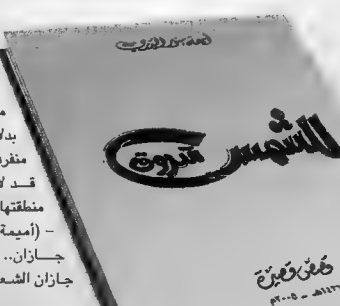 للشمس شروق
قصص قصيرة
١٤٢٦هـ - ٢٠٠٥م
قد لا
منطقتها
– (أميمة
جازان..
جازان الشعـ